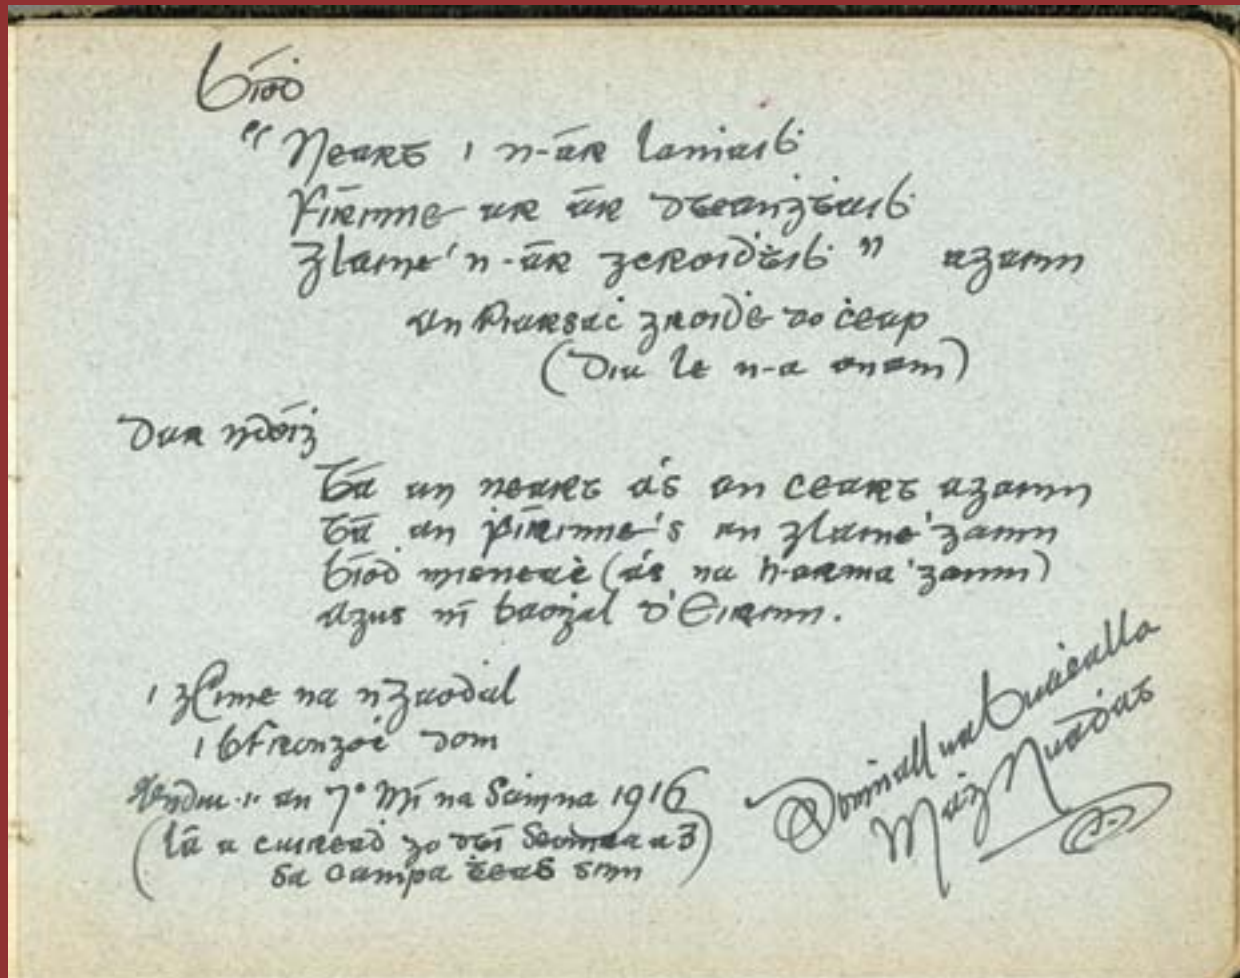 Bíoḋ
"Neart i n-ár lamaiḃ
Fírinne ar ár dteangṫaiḃ
Glaine 'n-ár gcroiḋṫiḃ" againn
an Piarsaċ groiḋe do ċeap
(Dia le n-a anam)
Dar ndóiġ
Tá an neart á's an ceart againn
tá an ḟírinne 's an glaine 'gainn
bíoḋ misneaċ (ás na h-arma 'gainn)
agus ní baoġal d'Éirinn.
i gCúinne na nGaoḋal
i bFrongoċ dom
Indiu .i. an 7° Mí na Samna 1916
(lá a cuireaḋ go dtí Seomra a 3
sa Campa ṫeas sinn)
Doṁnall ua Buaċalla
Maġ Nuaḋat